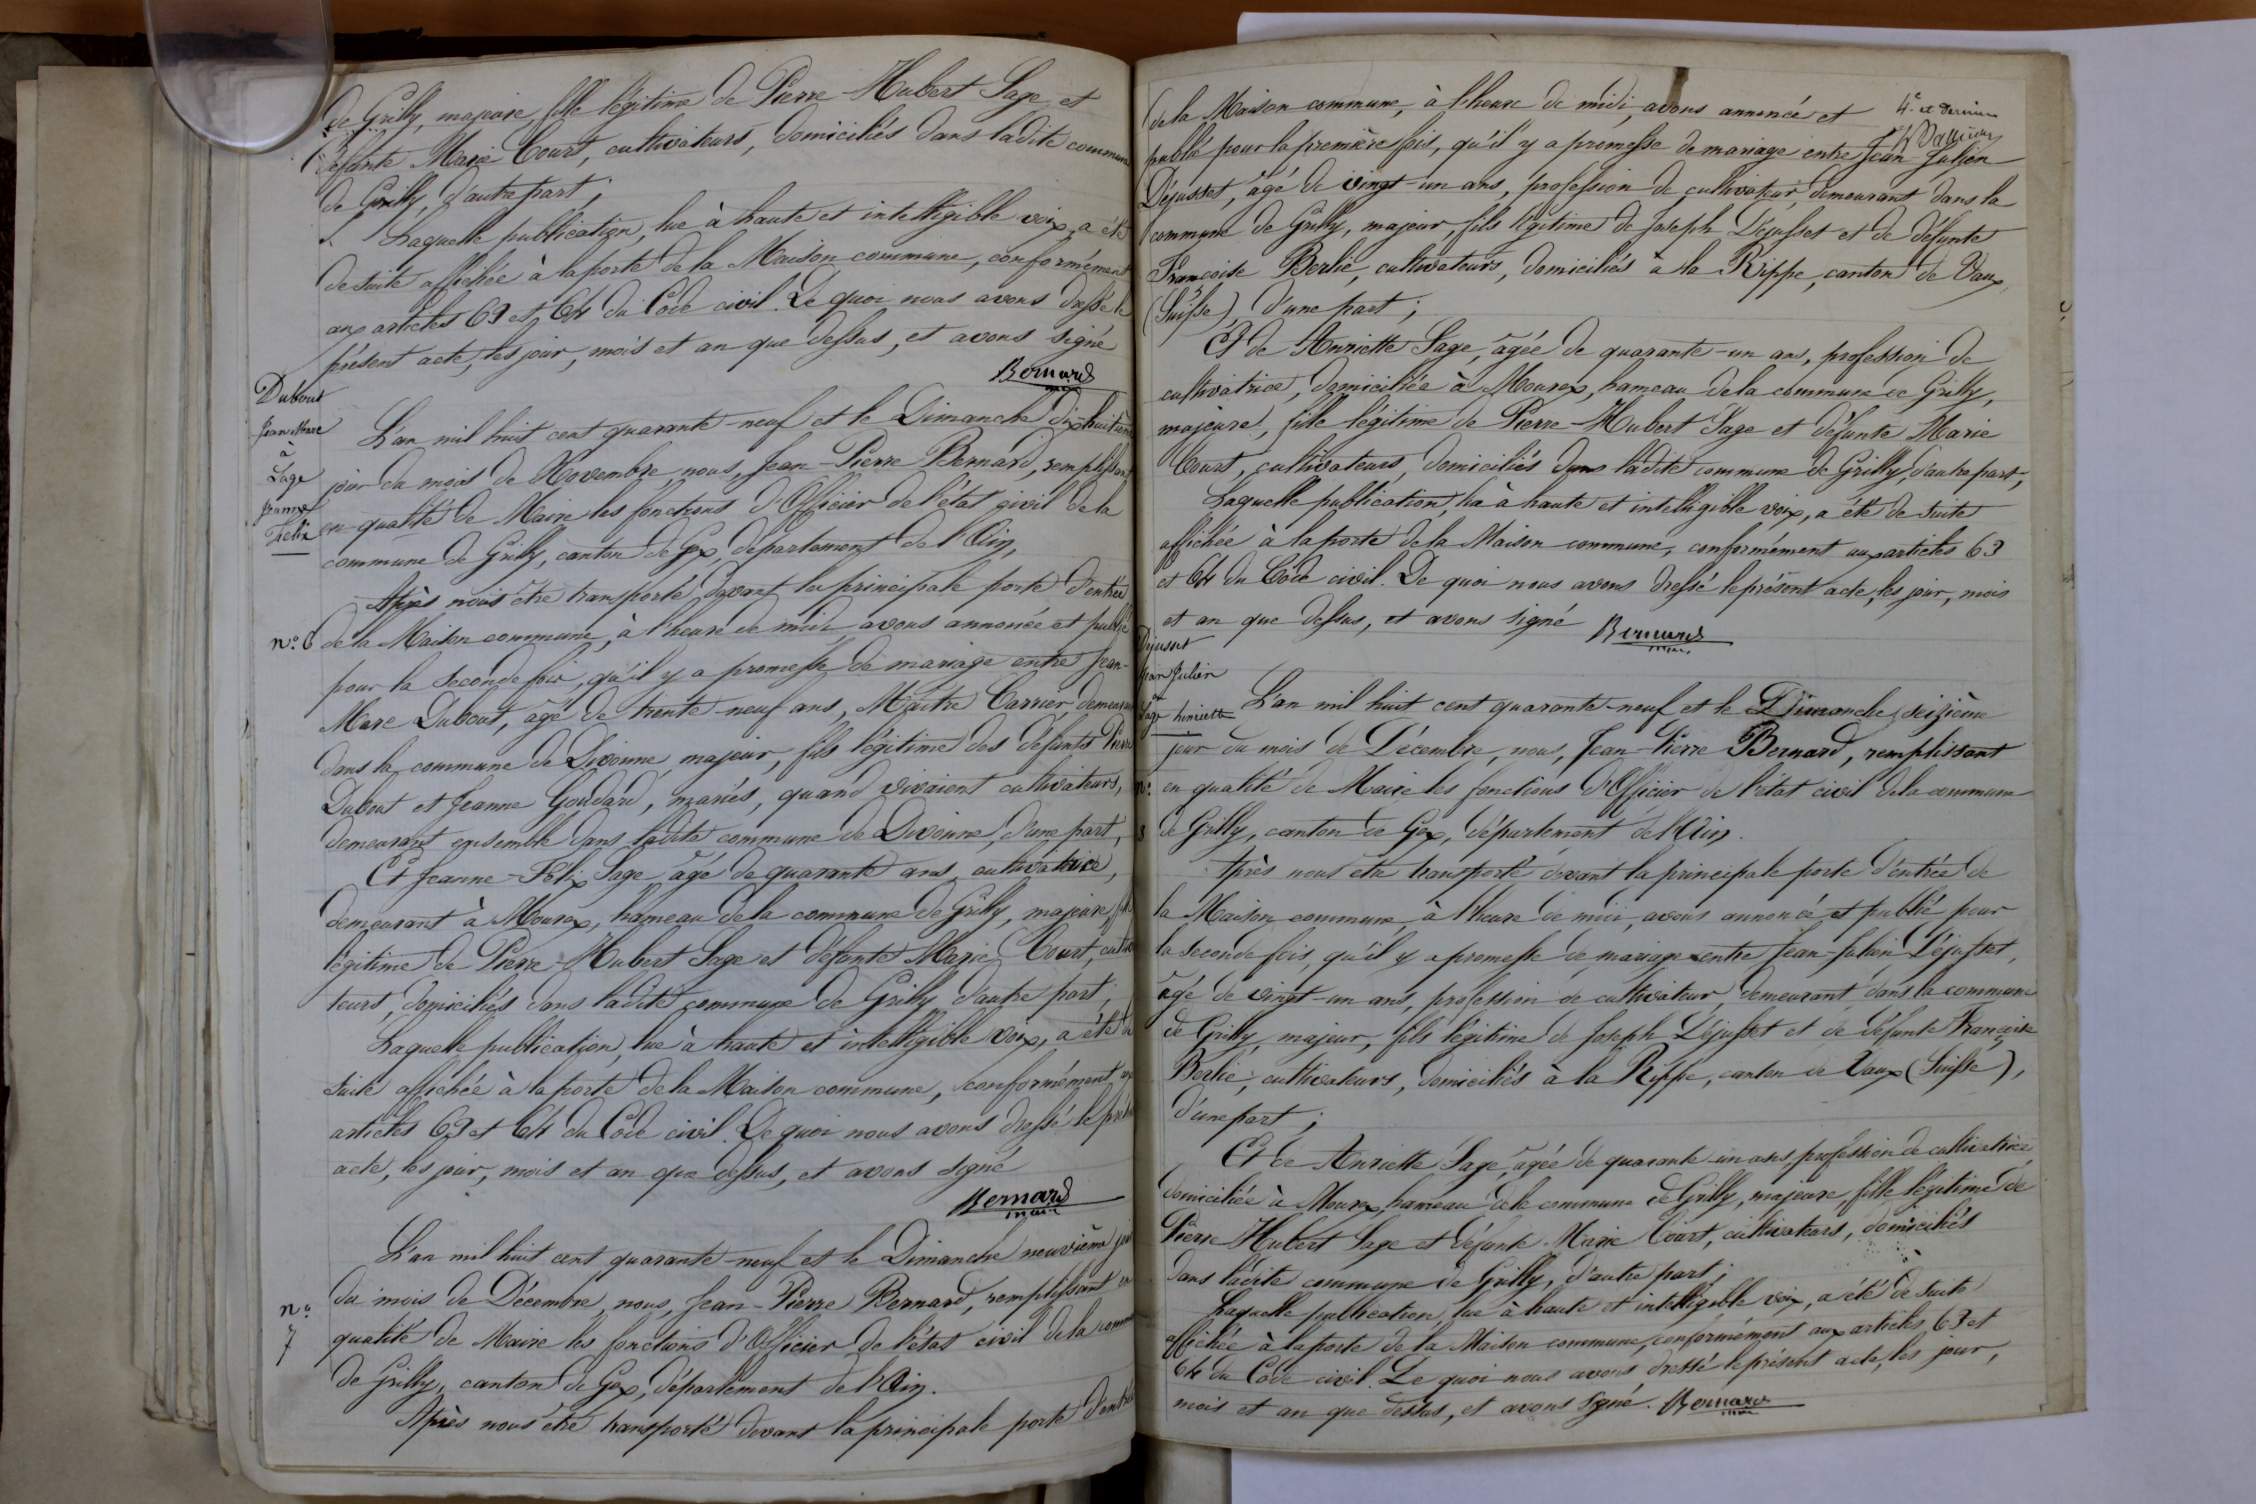 de Grilly, majeure, fille légitime de Pierre-Hubert Sage et
défunte Marie Court, cultivateurs, domiciliés dans ladite commune
de Grilly, d'autre part ;
Laquelle publication, lue à haute et intelligible voix, a été
de suite affichée à la porte de la Maison commune, conformément
aux articles 63 et 64 du Code civil. De quoi nous avons dressé le
présent acte, les jour, mois et an que dessus, et avons signé
Bernard
maire
Dubout
Jean Marc
à
Sage
Jeanne
Félix
L'an mil huit cent quarante-neuf et le Dimanche dix-huitième
jour du mois de Novembre, nous, Jean-Pierre Bernard, remplissant
en qualité de Maire les fonctions d'Officier de l'état civil de la
commune de Grilly, canton de Gex, département de l'Ain,
Après nous être transporté devant la principale porte d'entrée
n.º 6
de la Maison commune, à l'heure de midi, avons annoncé et publié
pour la seconde fois, qu'il y a promesse de mariage entre Jean-
Marc Dubout, âgé de trente-neuf ans, Maître Carrier, demeurant
dans la commune de Divonne, majeur, fils légitime des défunts Pierre
Dubout et Jeanne Goudard, mariés, quand vivaient cultivateurs,
demeurant ensemble dans ladite commune de Divonne, d'une part,
Et Jeanne-Félix Sage âgé de quarante ans, cultivatrice,
demeurant à Mourex, hameau de la commune de Grilly, majeure, fille
légitime de Pierre-Hubert Sage et défunte Marie Court, cultiva
teurs, domiciliés dans ladite commune de Grilly d'autre part ;
Laquelle publication, lue à haute et intelligible voix, a été de
suite affichée à la porte de la Maison commune, conformément aux
articles 63 et 64 du Code civil. De quoi nous avons dressé le présent
acte, les jour, mois et an que dessus, et avons signé
Bernard
maire
L'an mil huit cent quarante-neuf et le Dimanche neuvième jour
n.º
7
du mois de Décembre, nous, Jean-Pierre Bernard, remplissant en
qualité de Maire les fonctions d'Officier de l'état civil de la commune
de Grilly, canton de Gex, département de l'Ain.
Après nous être transporté devant la principale porte d'entrée
de la Maison commune, à l'heure de midi, avons annoncé et
4.e et dernier
publié pour la première fois, qu'il y a promesse de mariage entre Jean-Julien
Déjusset, âgé de vingt-un ans, profession de cultivateur, demeurant dans la
commune de Grilly, majeur, fils légitime de Joseph Déjusset et de défunte
Françoise Berlie, cultivateurs, domiciliés à la Rippe, canton de Vaux
(Suisse), d'une part ;
Et de Anriette Sage, âgée de quarante-un ans, profession de
cultivatrice, domiciliée à Mourex, hameau de la commune de Grilly,
majeure, fille légitime de Pierre-Hubert Sage et défunte Marie
Court, cultivateurs, domiciliés dans ladite commune de Grilly, d'autre part ;
Laquelle publication, lu à haute et intelligible voix, a été de suite
affichée à la porte de la Maison commune, conformément aux articles 63
et 64 du Code civil. De quoi nous avons dressé le présent acte, les jour, mois
et an que dessus, et avons signé Bernard
maire
Déjusset
Jean Julien
à
Sage henriette
L'an mil huit cent quarante-neuf et le Dimanche seizième
jour du mois de Décembre, nous, Jean-Pierre Bernard, remplissant
nº.
8
en qualité de Maire les fonctions d'Officier de l'état civil de la commune
de Grilly, canton de Gex, département de l'Ain.
Après nous être transporté devant la principale porte d'entrée de
la Maison commune, à l'heure de midi, avons annoncé et publié pour
la seconde fois, qu'il y a promesse de mariage entre Jean-Julien Déjusset,
âgé de vingt-un ans, profession de cultivateur demeurant dans la commune
de Grilly, majeur, fils légitime de Joseph Déjusset et de défunte Françoise
Berlie, cultivateurs, domiciliés à la Rippe, canton de Vaux (Suisse),
d'une part ;
Et de Anriette Sage, âgée de quarante-un ans, profession de cultivatrice
domiciliée à Mourex, hameau de la commune de Grilly, majeure, fille légitime de
Pierre Hubert Sage et défunte Marie Court, cultivateurs, domiciliés
dans ladite commune de Grilly, d'autre part ;
Laquelle publication, lue à haute et intelligible voix, a été de suite
affichée à la porte de la Maison commune, conformément aux articles 63 et
64 du Code civil. De quoi nous avons dressé le présent acte, les jour,
mois et an que dessus, et avons signé. Bernard
maire